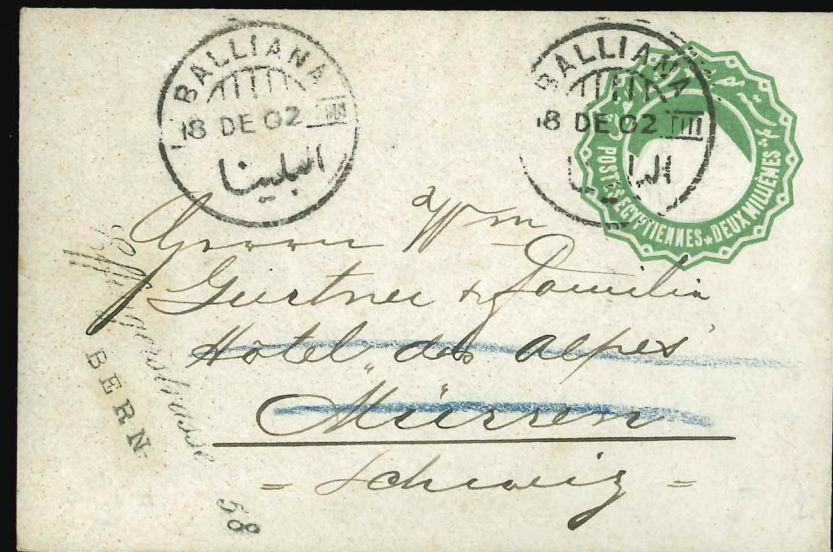 BALLIANA
18 DE 02 III
البلينا
BALLIANA
18 DE 02 IIII
POSTES EGYPTIENNES ★ DEUX MILLIÈMES
Herrn Wm
Gurtner & Familie
Hôtel des Alpes
Mürren
= Schweiz =
Effingerstrasse 58
BERN